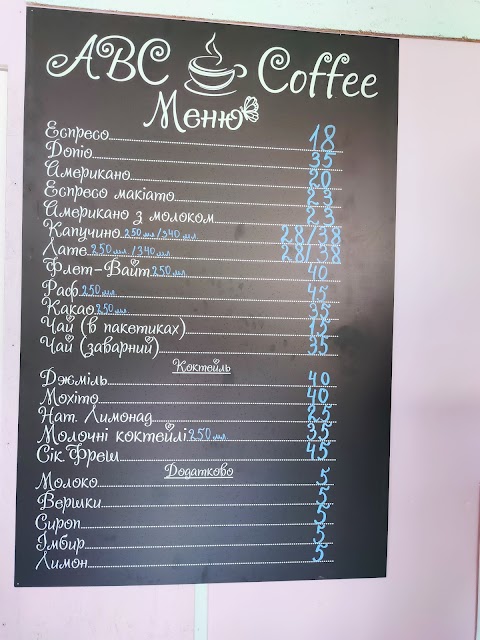 ABC Coffee
Меню
Еспресо 18
Допіо 35
Американо 20
Еспресо макіато 23
Американо з молоком 23
Капучино 250 мл/340 мл 28/38
Лате 250 мл/340 мл 28/38
Флет-Вайт 250 мл 40
Раф 250 мл 45
Какао 250 мл 35
Чай (в пакетиках) 15
Чай (заварний) 35
Коктейль
Джміль 40
Мохіто 40
Нат. Лимонад 25
Молочні коктейлі 250 мл 35
Сік Фреш 45
Додатково
Молоко 5
Вершки 5
Сироп 5
Імбир 5
Лимон 5